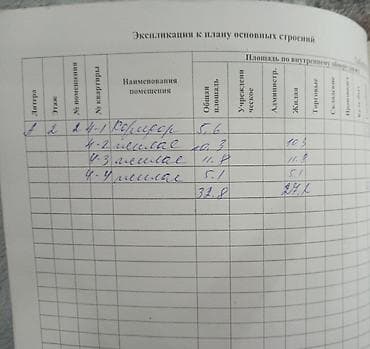 Экспликация к плану основных строений
Площадь по внутреннему
Литера Этаж № помещения № квартиры Наименования помещения Общая площадь Учрежденческое Администр. Жилая Торговые Складские
А 2 2 4-1 Коридор 5.6
4-2 жилае 10.3 10.3
4-3 жилае 11.8 11.8
4-4 жилае 5.1 5.1
32.8 27.2